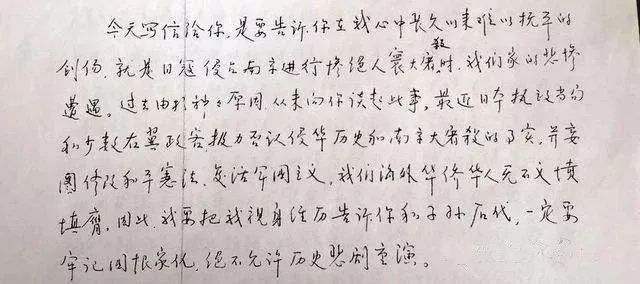 今天写信给你，是要告诉你在我心中长久以来难以抚平的
创伤，就是日冦侵占南京进行惨绝人寰大屠殺时，我们家的悲惨
遭遇。过去由于种种原因，从未向你谈起此事。最近日本执政当局
和少数右翼政客极力否认侵华历史和南京大屠殺的事实，并妄
图修改和平憲法，复活军国主义，我们海外华侨华人无不义愤
填膺。因此，我要把我親身经历告诉你和子孙后代，一定要
牢记国恨家仇，绝不允许历史悲剧重演。